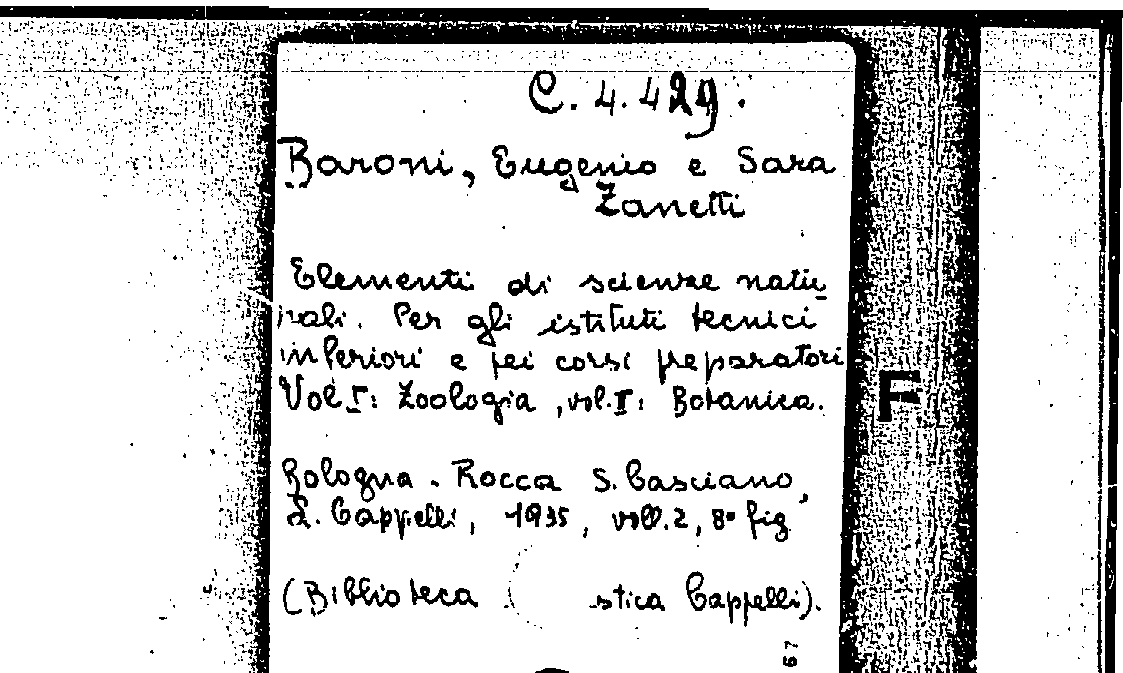 C. 4. 429.
Baroni, Eugenio e Sara
Zanetti
Elementi di scienze natu
rali. Per gli istituti tecnici
inferiori e pei corsi preparatori
Vol. I: Zoologia, vol. II: Botanica.
F
Bologna - Rocca S. Casciano,
L. Cappelli, 1935, voll. 2, 8° fig.
(Biblioteca stica Cappelli).
67